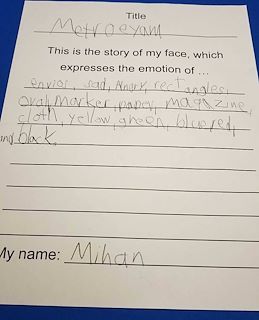 Title
Metroeyam
This is the story of my face, which
expresses the emotion of ...
envior, sad, rectangles,
oval, marker, paper, magazine,
cloth, yellow, green, blue red,
and black
My name: Mihan